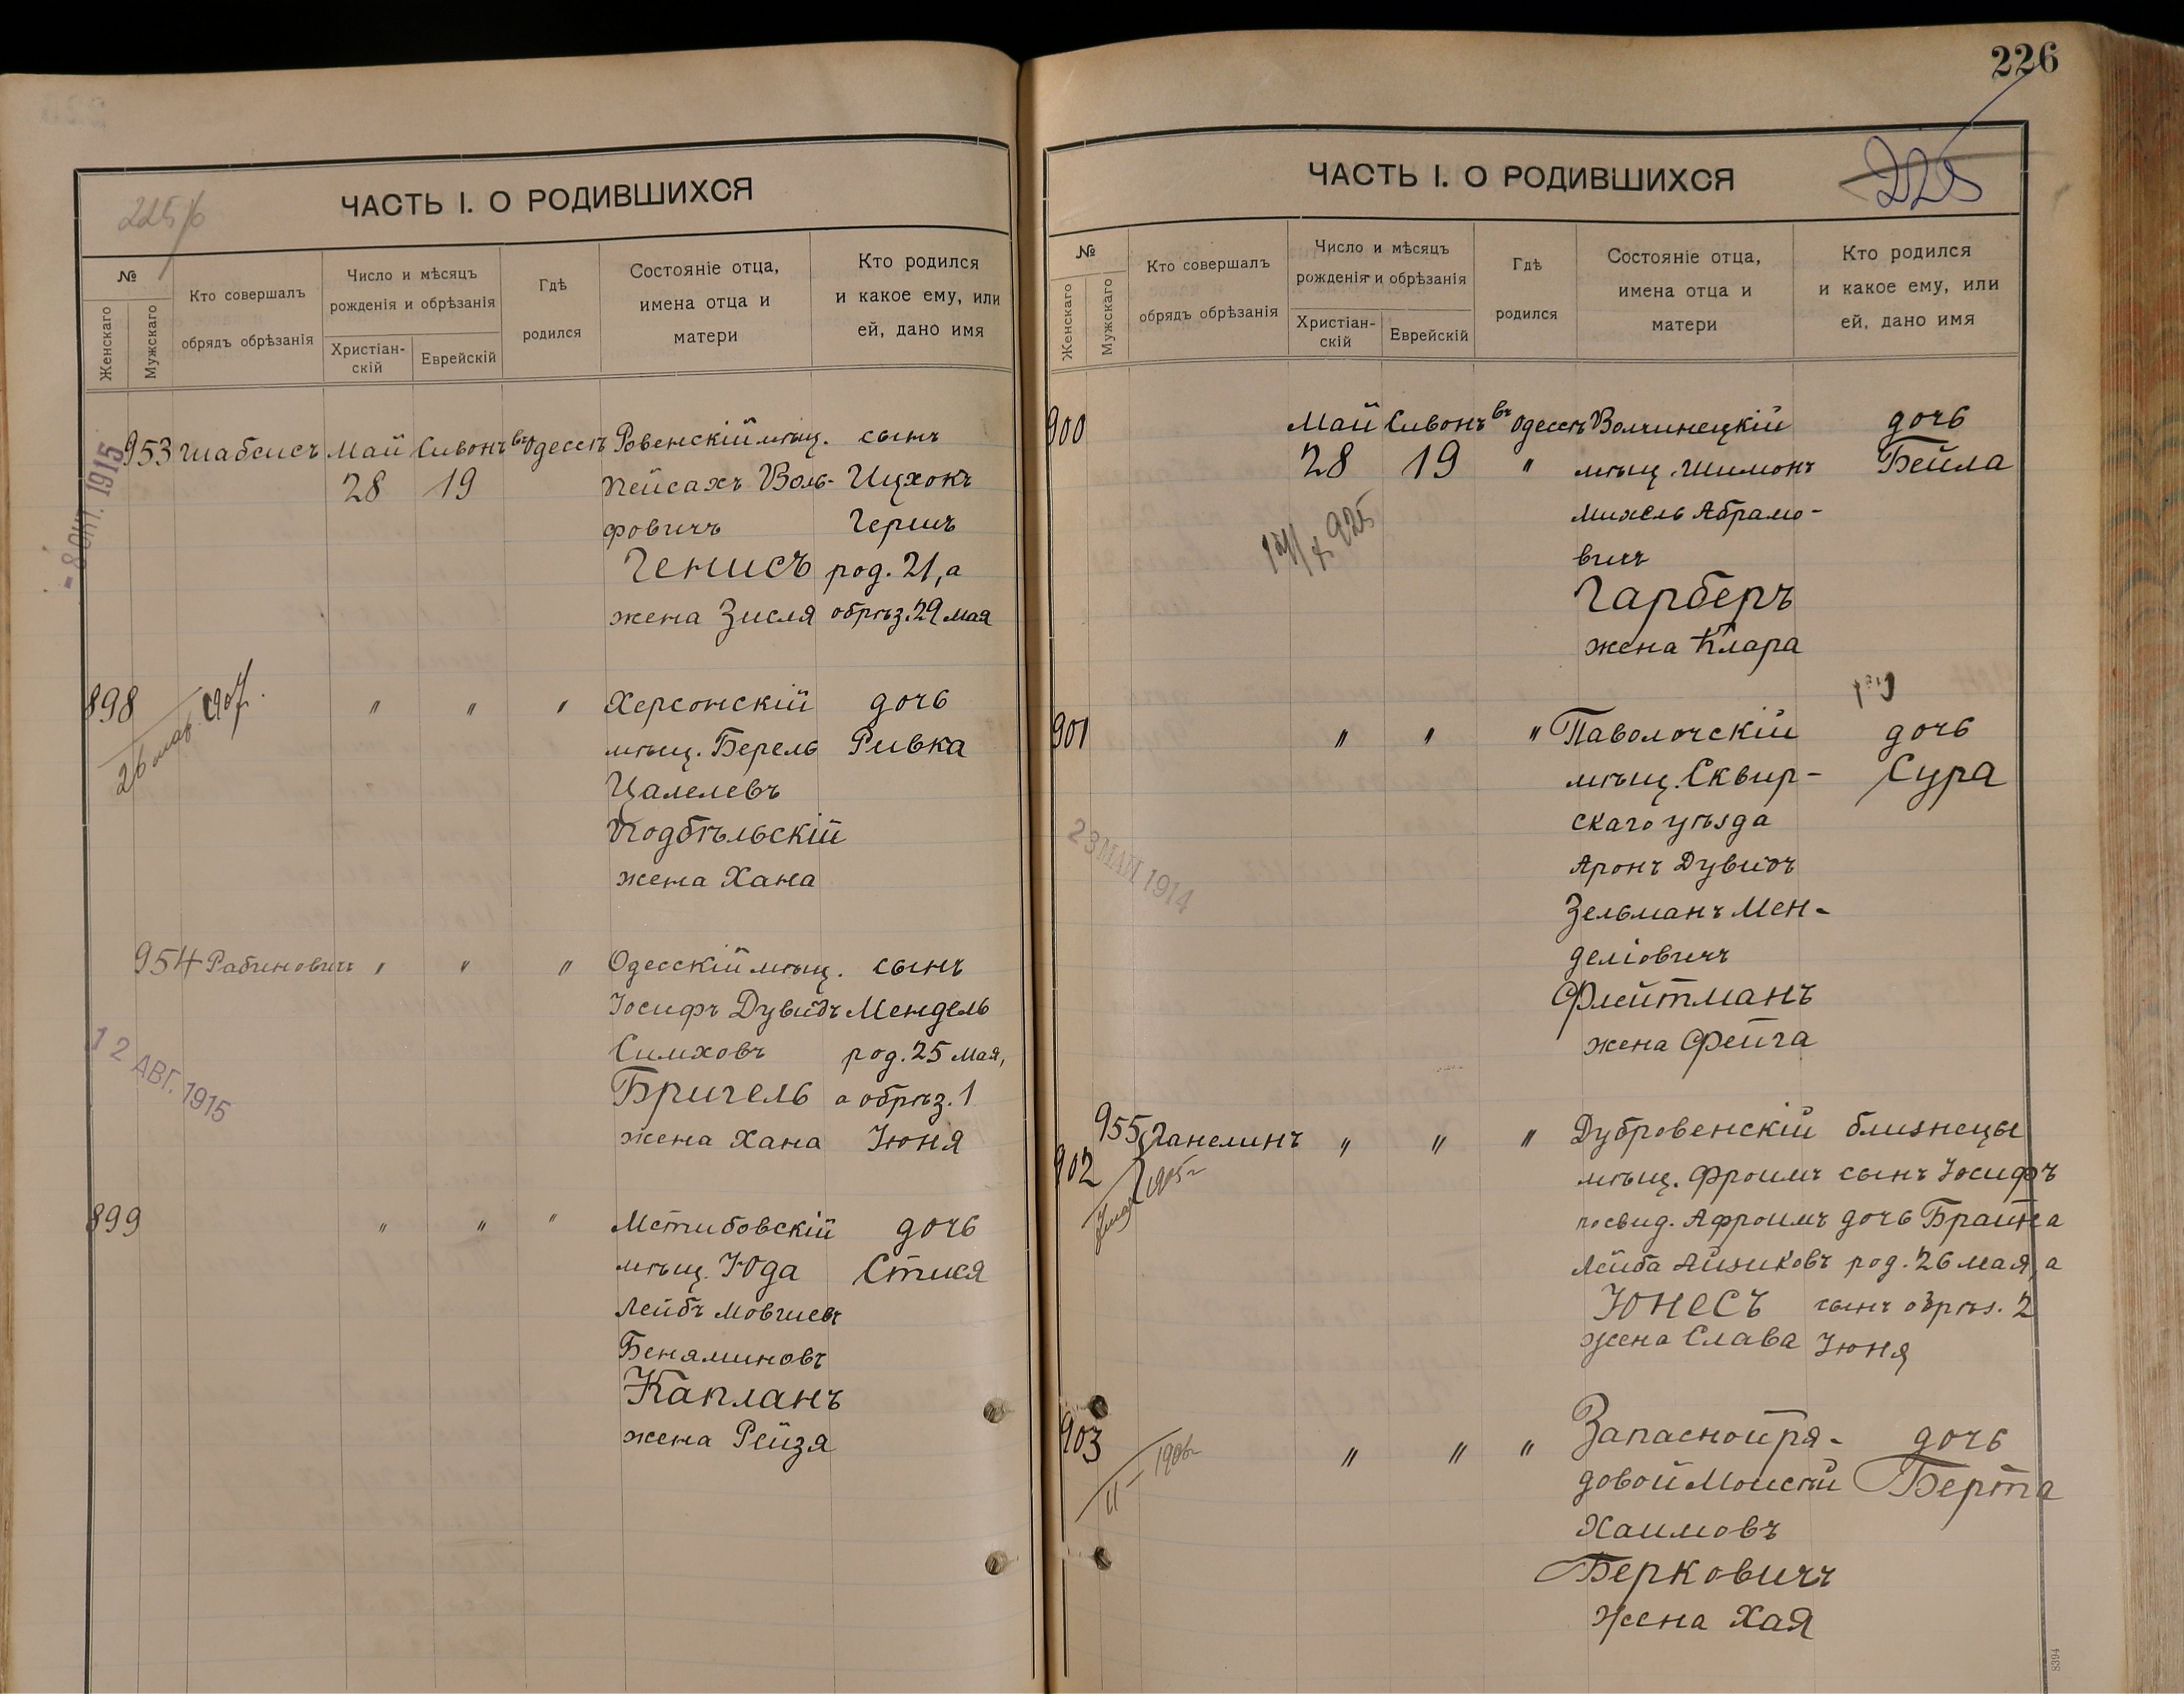 225/б
ЧАСТЬ I. О РОДИВШИХСЯ
№
Женскаго
Мужскаго
Кто совершалъ
обрядъ обрѣзанія
Число и мѣсяцъ
рожденія и обрѣзанія
Христіан-
скій
Еврейскій
Гдѣ
родился
Состояніе отца,
имена отца и
матери
Кто родился
и какое ему, или
ей, дано имя
953 Шабсисъ Май Сивонъ въ Одессѣ Ровенскій мѣщ. сынъ
28 19 Пейсахъ Воль- Ицхокъ
фовичъ Гершъ
Генисъ род. 21, а
жена Зисля обрѣз. 29 мая
- 8 ОКТ. 1915
898 " " " Херсонскій дочь
мѣщ. Берель Ривка
Цалелевъ
Подбѣльскій
жена Хана
954 Рабиновичъ " " " Одесскій мѣщ. сынъ
Іосифъ Дувидъ Мендель
Симховъ род. 25 мая,
Бригель а обрѣз. 1
жена Хана Іюня
12 АВГ. 1915
899 " " " Мстибовскій дочь
мѣщ. Юда Стися
Лейбъ Мовшевъ
Беняминовъ
Капланъ
жена Рейзя
226
225
ЧАСТЬ I. О РОДИВШИХСЯ
№
Женскаго
Мужскаго
Кто совершалъ
обрядъ обрѣзанія
Число и мѣсяцъ
рожденія и обрѣзанія
Христіан-
скій
Еврейскій
Гдѣ
родился
Состояніе отца,
имена отца и
матери
Кто родился
и какое ему, или
ей, дано имя
900 Май Сивонъ въ Одессѣ Волчинецкій дочь
28 19 " мѣщ. Шимонъ Бейла
Михель Абрамо-
вичъ
Гарберъ
жена Клара
901 " " " Паволочскій дочь
мѣщ. Сквир- Сура
скаго уѣзда
Аронъ Дувидъ
Зельманъ Мен-
деліовичъ
Флейтманъ
жена Фейга
23 МАЙ 1914
955 Ганелинъ " " " Дубровенскій близнецы
902 мѣщ. Фроимъ сынъ Іосифъ
1905 г
посвид. Афроимъ дочь Брайна
Лейба Айзиковъ род. 26 мая, а
Юнесъ сынъ обрѣз. 2
жена Слава Іюня
903 " " " Запасной ря- дочь
довой Моисей Берта
Хаимовъ
Берковичъ
жена Хая
8394